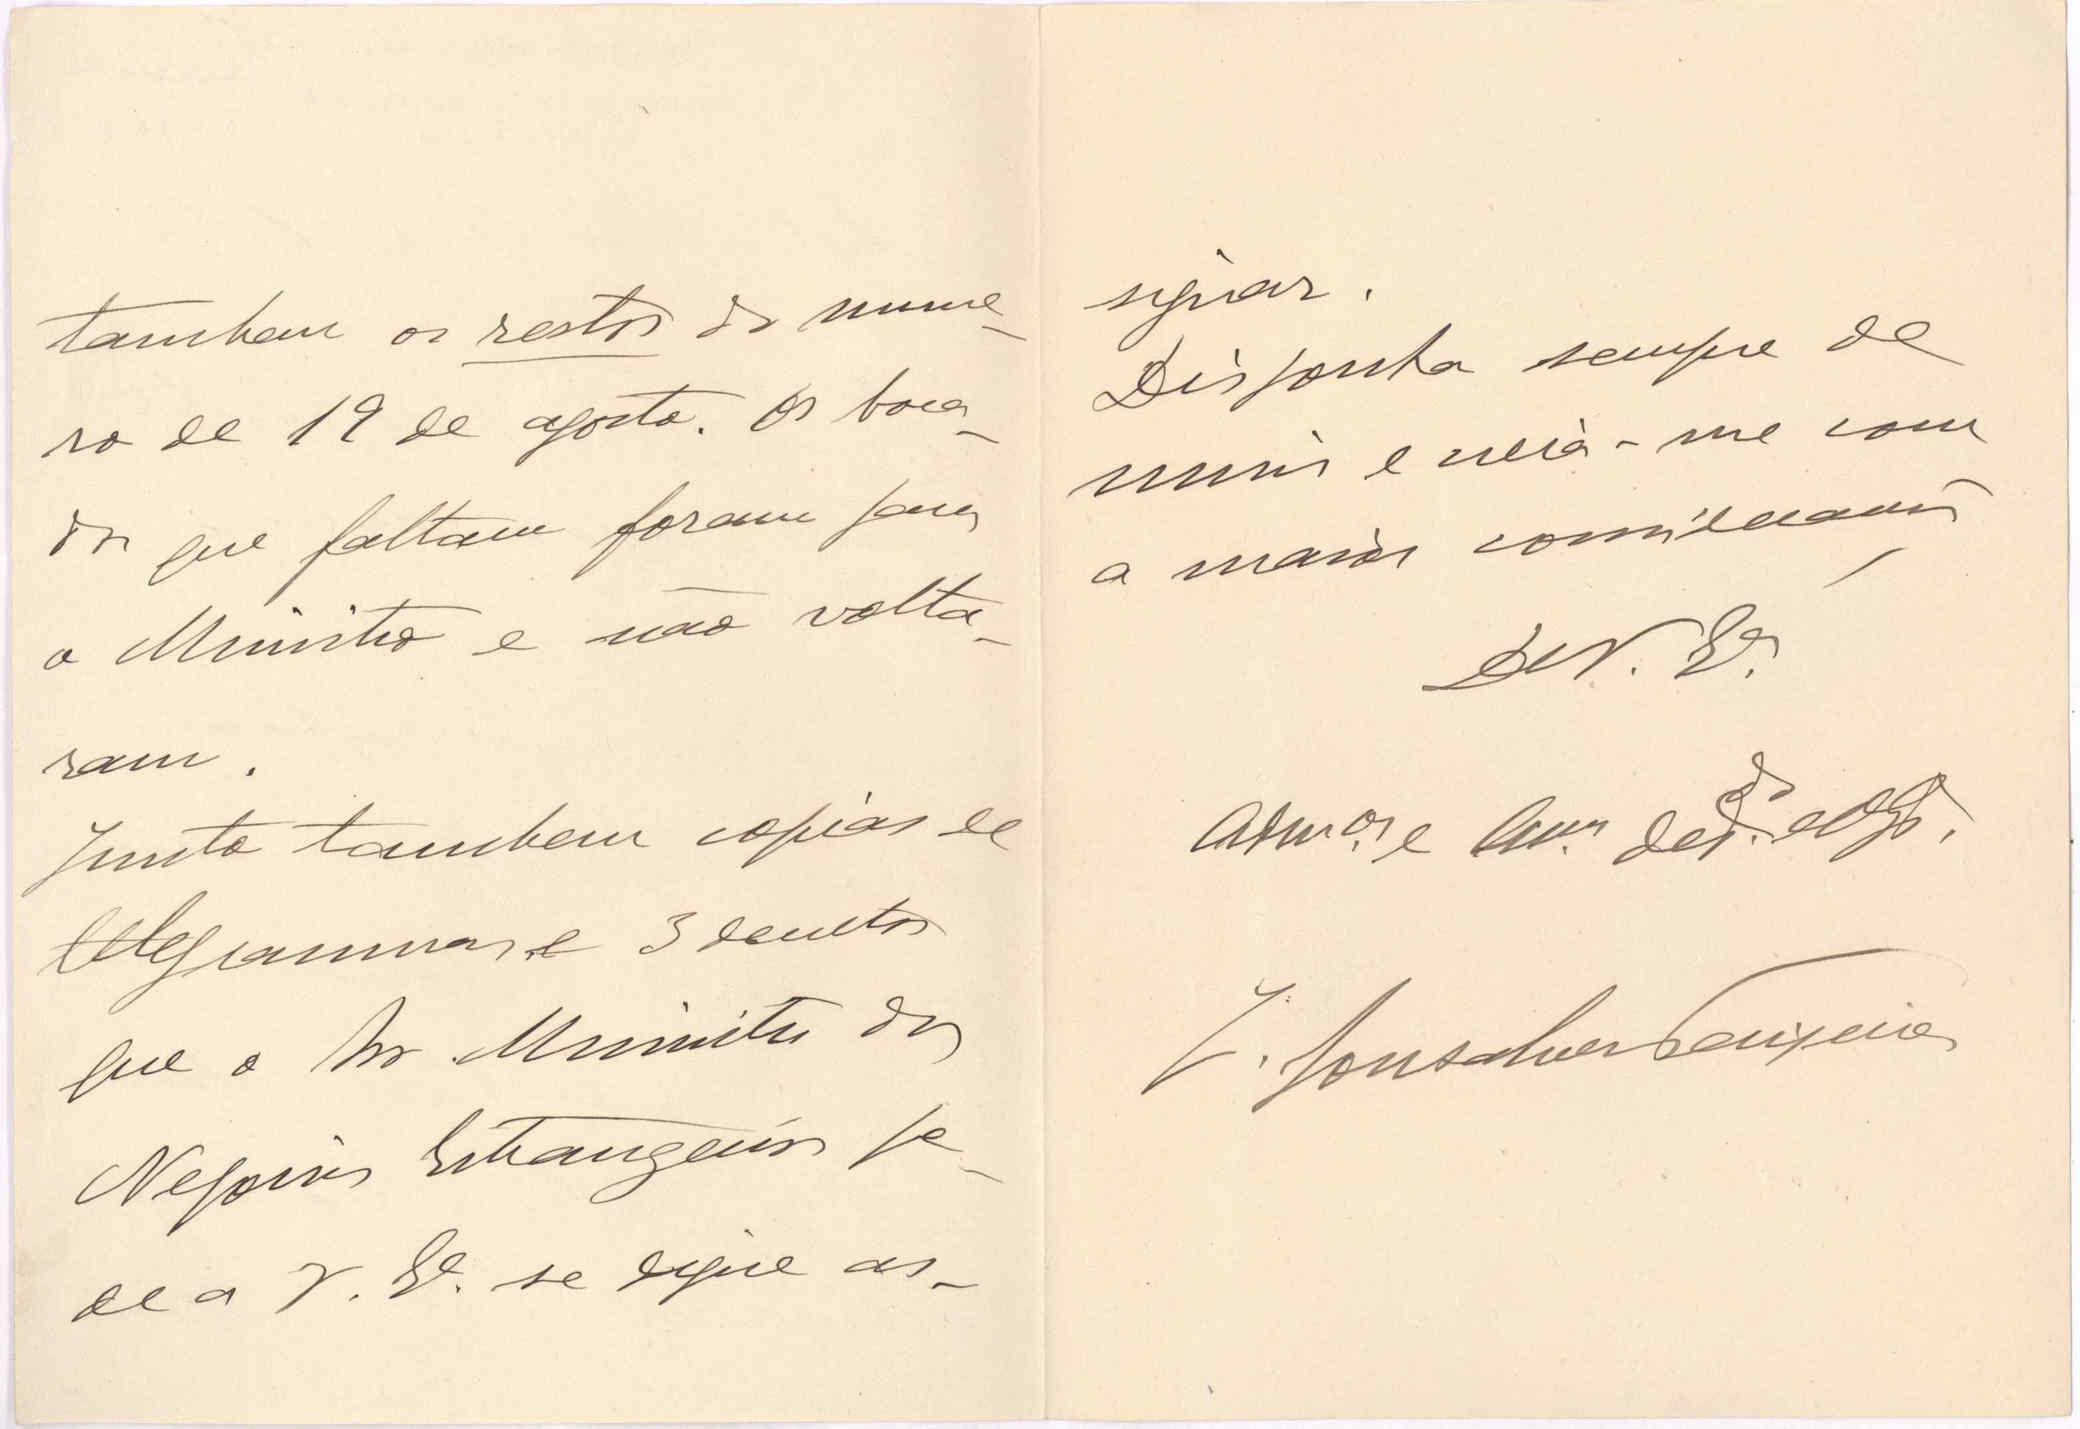 tambem os restos do nume-
ro de 19 de agosto. Os boca-
dos que faltam foram para
o Ministro e não volta-
ram.
Junto tambem copias de
telegrammas e 3 decretos
que o Sr. Ministro dos
Negocios Estrangeiros pe-
de a V. Ex. se digne as-
signar.
Disponha sempre de
mim e creia-me com
a maior consideração
De V. Ex.
Adm.or e Am.
J. Gonsalves Teixeira